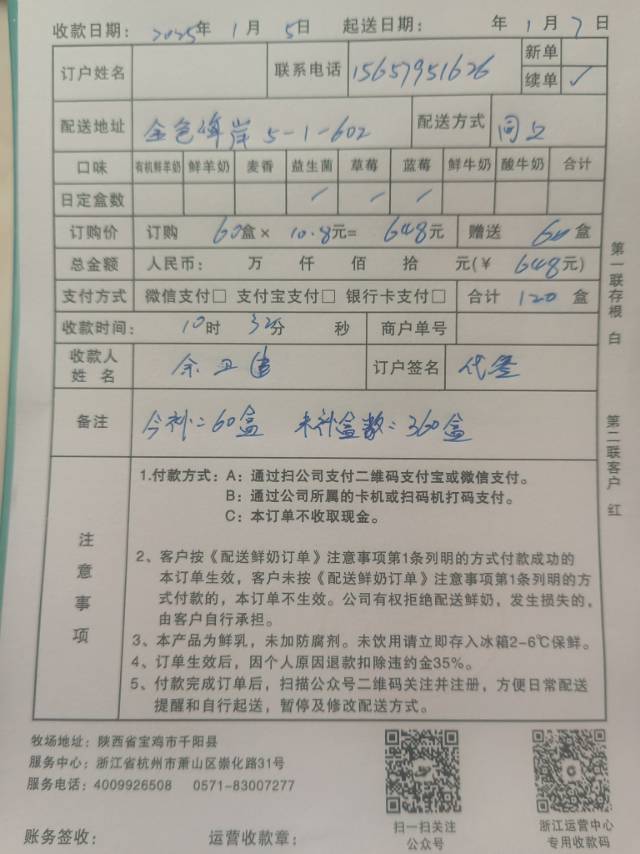 收款日期: 2025年 1月 5日 起送日期: 年 1月 7日
订户姓名 联系电话 15657951626 新单
续单 ✓
配送地址 金色海岸 5-1-602 配送方式 同上
口味 有机鲜羊奶 鲜羊奶 麦香 益生菌 草莓 蓝莓 鲜牛奶 酸牛奶 合计
日定盒数 / / /
订购价 订购 60盒× 10.8元= 648元 赠送 60盒
总金额 人民币: 万 仟 佰 拾 元(¥ 648元)
支付方式 微信支付□ 支付宝支付□ 银行卡支付□ 合计 120 盒
收款时间: 10时 32分 秒 商户单号
收款人姓名 余卫 订户签名 代签
备注 今补:60盒 未补盒数:360盒
注意事项
1.付款方式:A:通过扫公司支付二维码支付宝或微信支付。
B:通过公司所属的卡机或扫码机打码支付。
C:本订单不收取现金。
2、客户按《配送鲜奶订单》注意事项第1条列明的方式付款成功的
本订单生效,客户未按《配送鲜奶订单》注意事项第1条列明的方
式付款的,本订单不生效。公司有权拒绝配送鲜奶,发生损失的,
由客户自行承担。
3、本产品为鲜乳,未加防腐剂。未饮用请立即存入冰箱2-6℃保鲜。
4、订单生效后,因个人原因退款扣除违约金35%。
5、付款完成订单后,扫描公众号二维码关注并注册,方便日常配送
提醒和自行起送,暂停及修改配送方式。
第一联存根 白
第二联客户 红
牧场地址:陕西省宝鸡市千阳县
服务中心:浙江省杭州市萧山区崇化路31号
服务电话:4009926508 0571-83007277
扫一扫关注
公众号
浙江运营中心
专用收款码
账务签收: 运营收款章: